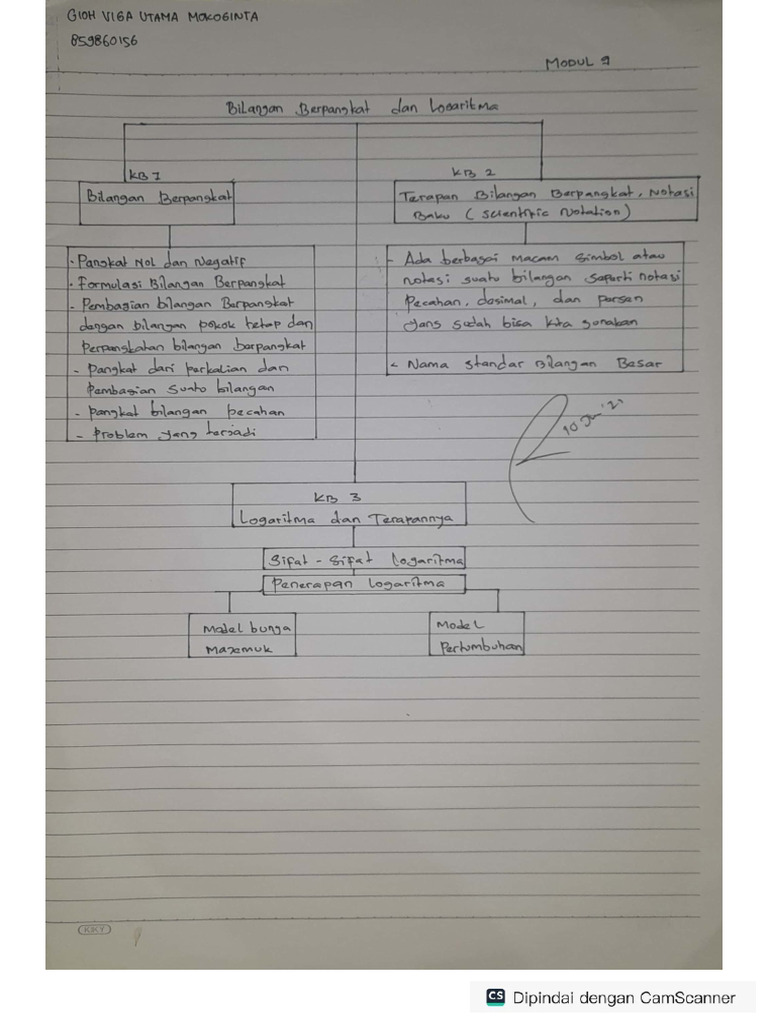 GIOH VIGA UTAMA MOKOGINTA
859860156
MODUL 9
Bilangan Berpangkat dan Logaritma
KB 1
Bilangan Berpangkat
KB 2
Terapan Bilangan Berpangkat, Notasi
Baku (Scientific Notation)
- Pangkat Nol dan Negatif
- Formulasi Bilangan Berpangkat
- Pembagian bilangan Berpangkat
dengan bilangan pokok tetap dan
Perpangkatan bilangan berpangkat
- Pangkat dari perkalian dan
Pembagian suatu bilangan
- Pangkat bilangan pecahan
- Problem yang terjadi
- Ada berbagai macam simbol atau
notasi suatu bilangan seperti notasi
Pecahan, desimal, dan persen
yang sudah bisa kita gunakan
- Nama standar Bilangan Besar
KB 3
Logaritma dan Terapannya
Sifat - Sifat Logaritma
Penerapan Logaritma
Model bunga
Majemuk
Model
Pertumbuhan
KKY
CS Dipindai dengan CamScanner